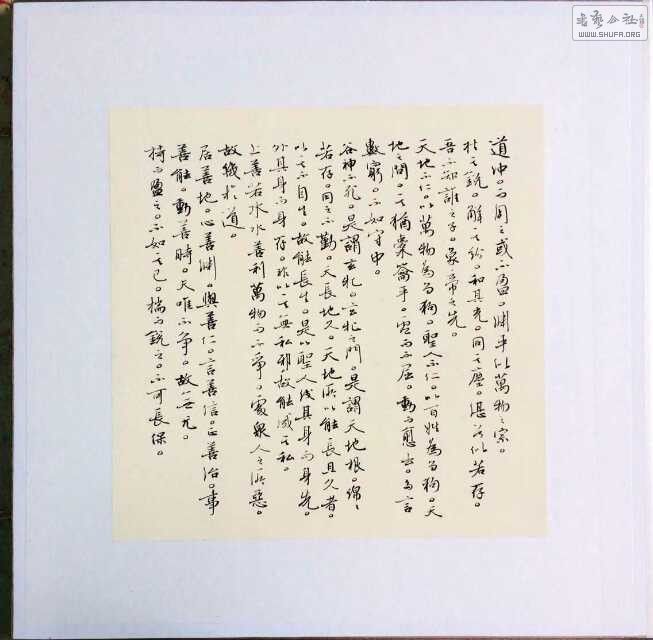 書藝公社
WWW.SHUFA.ORG
道冲。而用之或不盈。渊乎似萬物之宗。
挫其銳。解其紛。和其光。同其塵。湛兮似若存。
吾不知誰之子。象帝之先。
天地不仁。以萬物為芻狗。聖人不仁。以百姓為芻狗。天
地之間。其猶橐籥乎。虛而不屈。動而愈出。多言
數窮。不如守中。
谷神不死。是謂玄牝。玄牝之門。是謂天地根。綿綿
若存。用之不勤。天長地久。天地所以能長且久者。
以其不自生。故能長生。是以聖人後其身而身先。
外其身而身存。非以其無私邪。故能成其私。
上善若水。水善利萬物而不爭。處衆人之所惡。
故幾於道。
居善地。心善渊。與善仁。言善信。正善治。事
善能。動善時。夫唯不爭。故無尤。
持而盈之。不如其已。揣而銳之。不可長保。